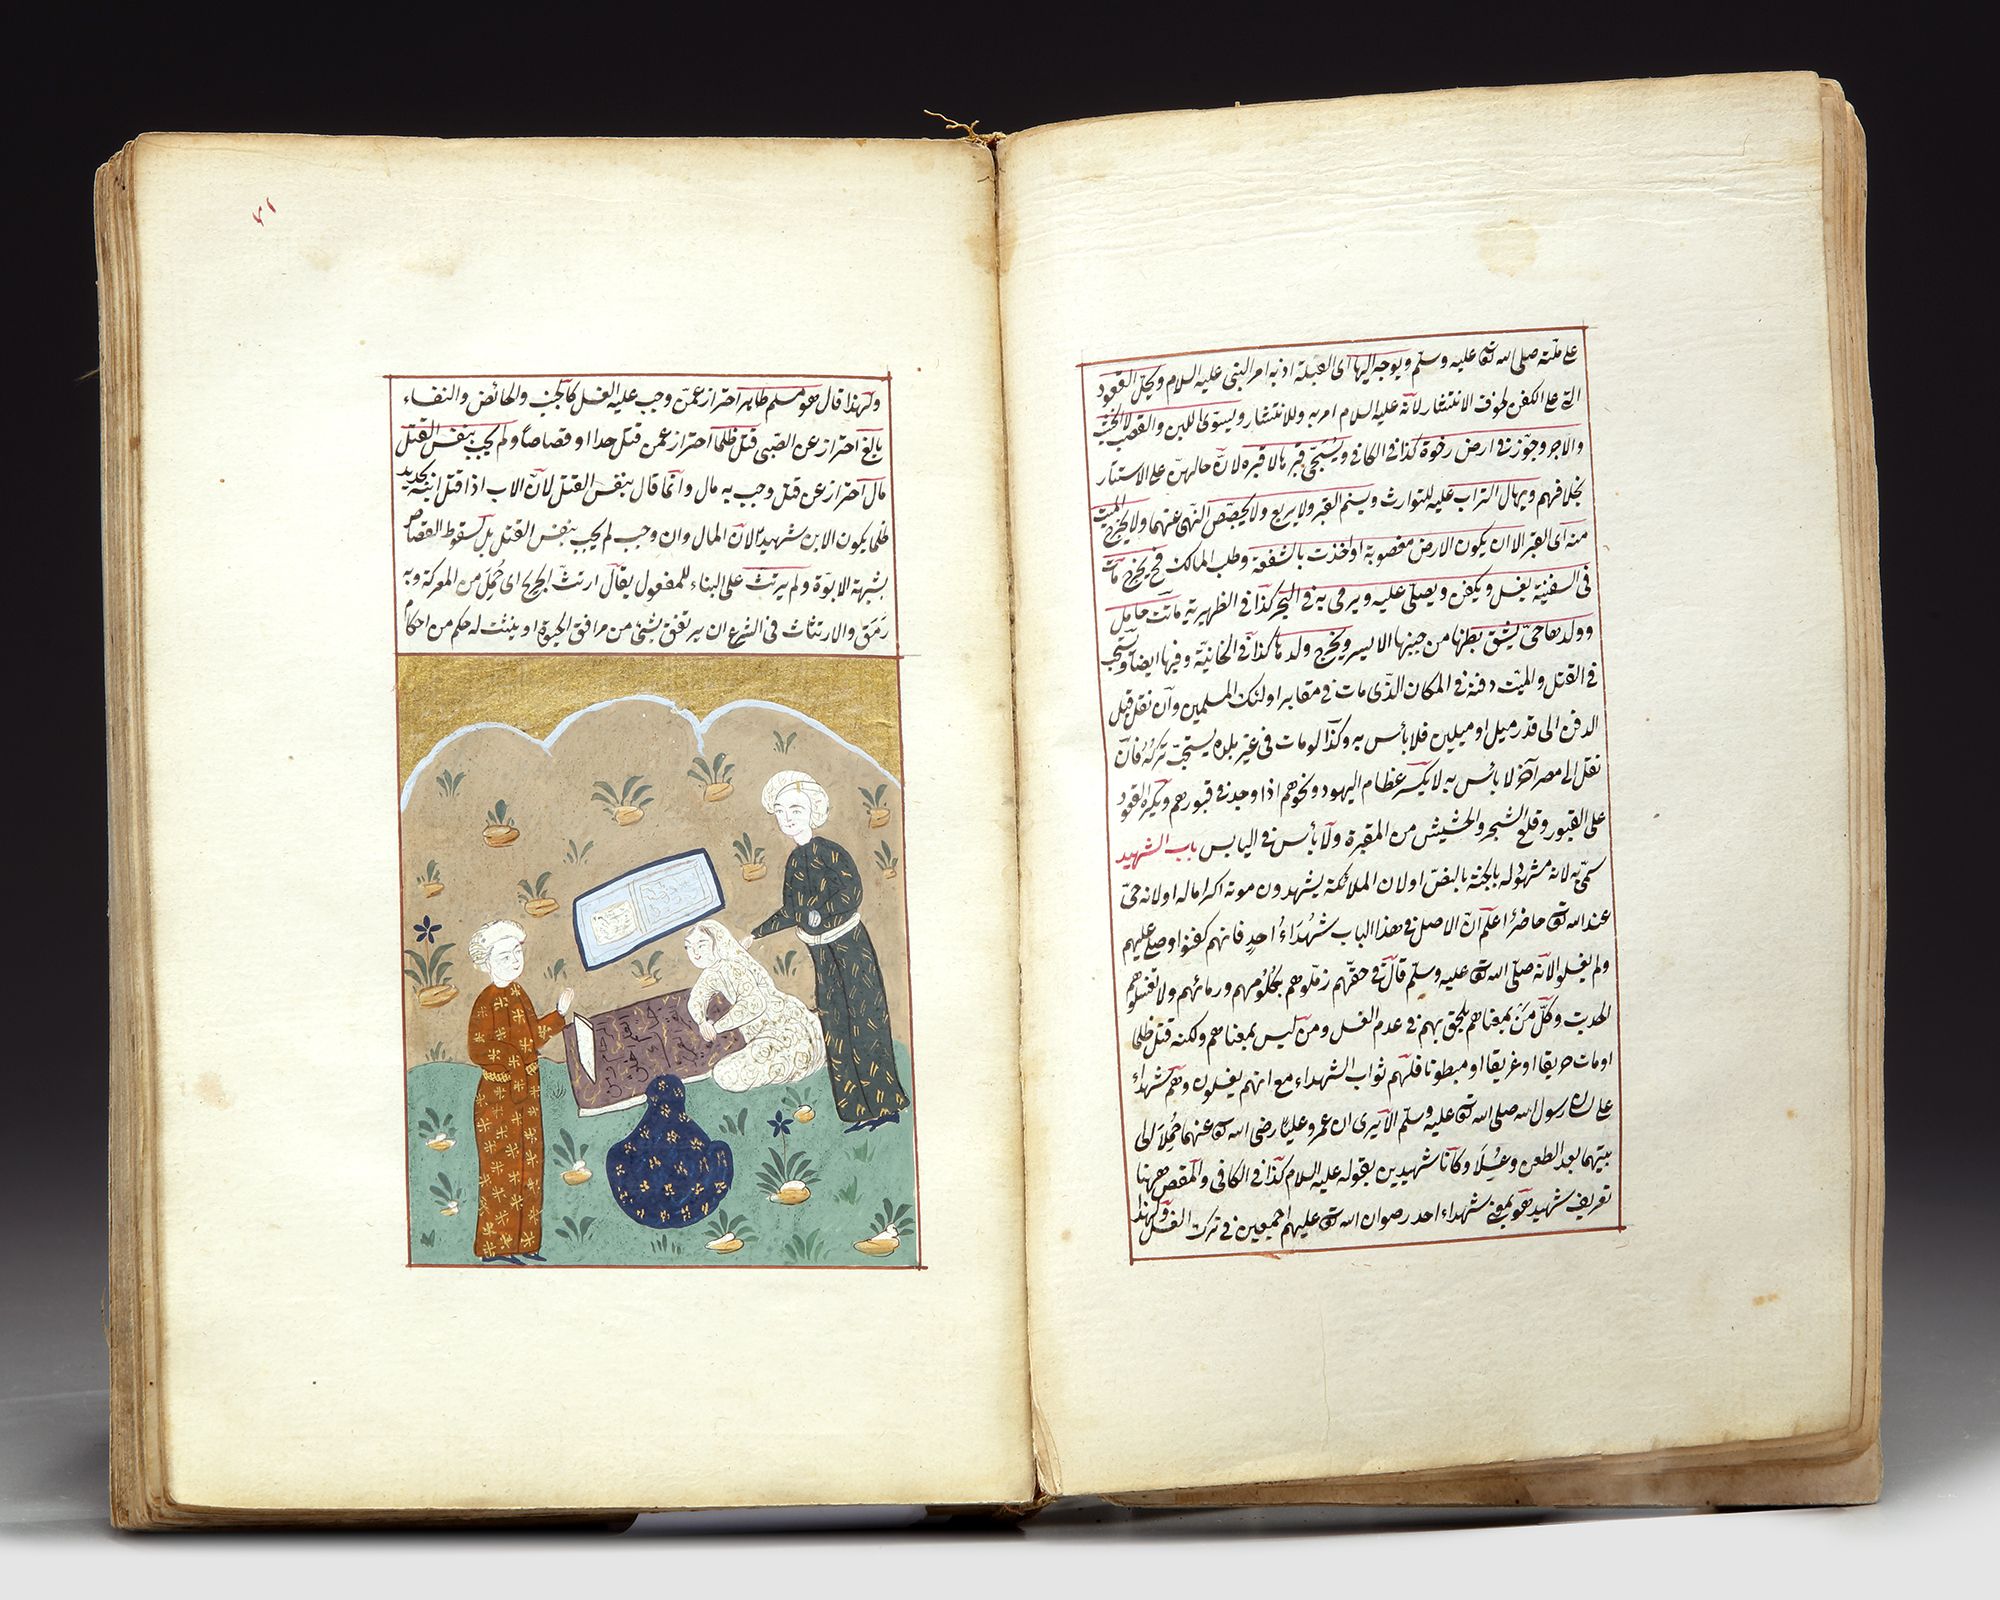 على ملّته صلى الله تعالى عليه وسلّم ويوجه اليها اى القبلة اذ به امر النبى عليه السلام ويحلّ العقود
التى على الكفن لخوف الانتشار لانّه عليه السلام امر به وللانتشار ويسوّى اللبن والقصب لا الخشب
والاجر وجوّز فى ارض رخوة كذا فى الكافى ويُسَجّى قبرها لا قبره لانّ حالهنّ على الاستتار
بخلافهم ويهال التراب عليه للتوارث ويسنم القبر ولا يربع ولا يجصّص للنهى عنهما ولا يخرج الميت
منه اى القبر الا ان يكون الارض مغصوبة او اخذت بالشفعة وطلب المالك فح يخرج مات
فى السفينة يغسل ويكفن ويصلّى عليه ويرمى به فى البحر كذا فى الظهيرية ماتت حامل
وولدها حىّ يشق بطنها من جنبها الايسر ويخرج ولدها كذا فى الخانيّة وفيها ايضا ويستحبّ
فى القتل والميّت دفنه فى المكان الذى مات فى مقابر اولئك المسلمين وان نقل قبل
الدفن الى قدر ميل او ميلين فلا بأس به وكذا لو مات فى غير بلده يستحبّ تركه فان
نقل الى مصر آخر لا بأس به لا يكسر عظام اليهود ونحوهم اذا وجد فى قبورهم ويكره القعود
على القبور وقلع الشجر والحشيش من المقبرة ولا بأس فى اليابس باب الشهيد
سمّى به لانه مشهود له بالجنة بالنصّ او لان الملائكة يشهدون موته اكراما له او لانه حىّ
عند الله تعالى حاضر اعلم انّ الاصل فى هذا الباب شهداء احد فانهم كفنوا وصلى عليهم
ولم يغسلوا لانّه صلّى الله تعالى عليه وسلّم قال فى حقّهم زمّلوهم بكلومهم ودمائهم ولا تغسلوهم
الحديث وكلّ من بمعناهم يلحق بهم فى عدم الغسل ومن ليس بمعناهم ولكنه قتل ظلما
او مات حريقا او غريقا او مبطونا فلهم ثواب الشهداء مع انهم يغسلون وهم شهداء
على لسان رسول الله صلى الله تعالى عليه وسلّم الا يرى ان عمر وعليّا رضى الله تعالى عنهما حُمِلا الى
بيتهما بعد الطعن وغُسِلا وكانا شهيدين بقوله عليه السلام كذا فى الكافى والمقصّ ههنا
تعريف شهيد هو بمعنى شهداء احد رضوان الله تعالى عليهم اجمعين فى ترك الغسل ولهذا
٤١
ولهذا قال هو مسلم طاهر احتراز عمّن وجب عليه الغسل كالجنب والحائض والنفساء
بالغ احتراز عن الصبّى قتل ظلما احتراز عمن قتل حدا او قصاصا ولم يجب بنفس القتل
مال احتراز عن قتل وجب به مال وانّما قال بنفس القتل لانّ الاب اذا قتل ابنه بحديد
ظلما يكون الابن شهيدا لانّ المال وان وجب لم يجب بنفس القتل بل لسقوط القصاص
بشبهة الابوّة ولم يرتث على البناء للمفعول يقال ارتثّ الجريح اى حُمِلَ من المعركة وبه
رمق والارتثاث فى الشرع ان يرتفق بشئ من مرافق الحيوة او يثبت له حكم من احكام